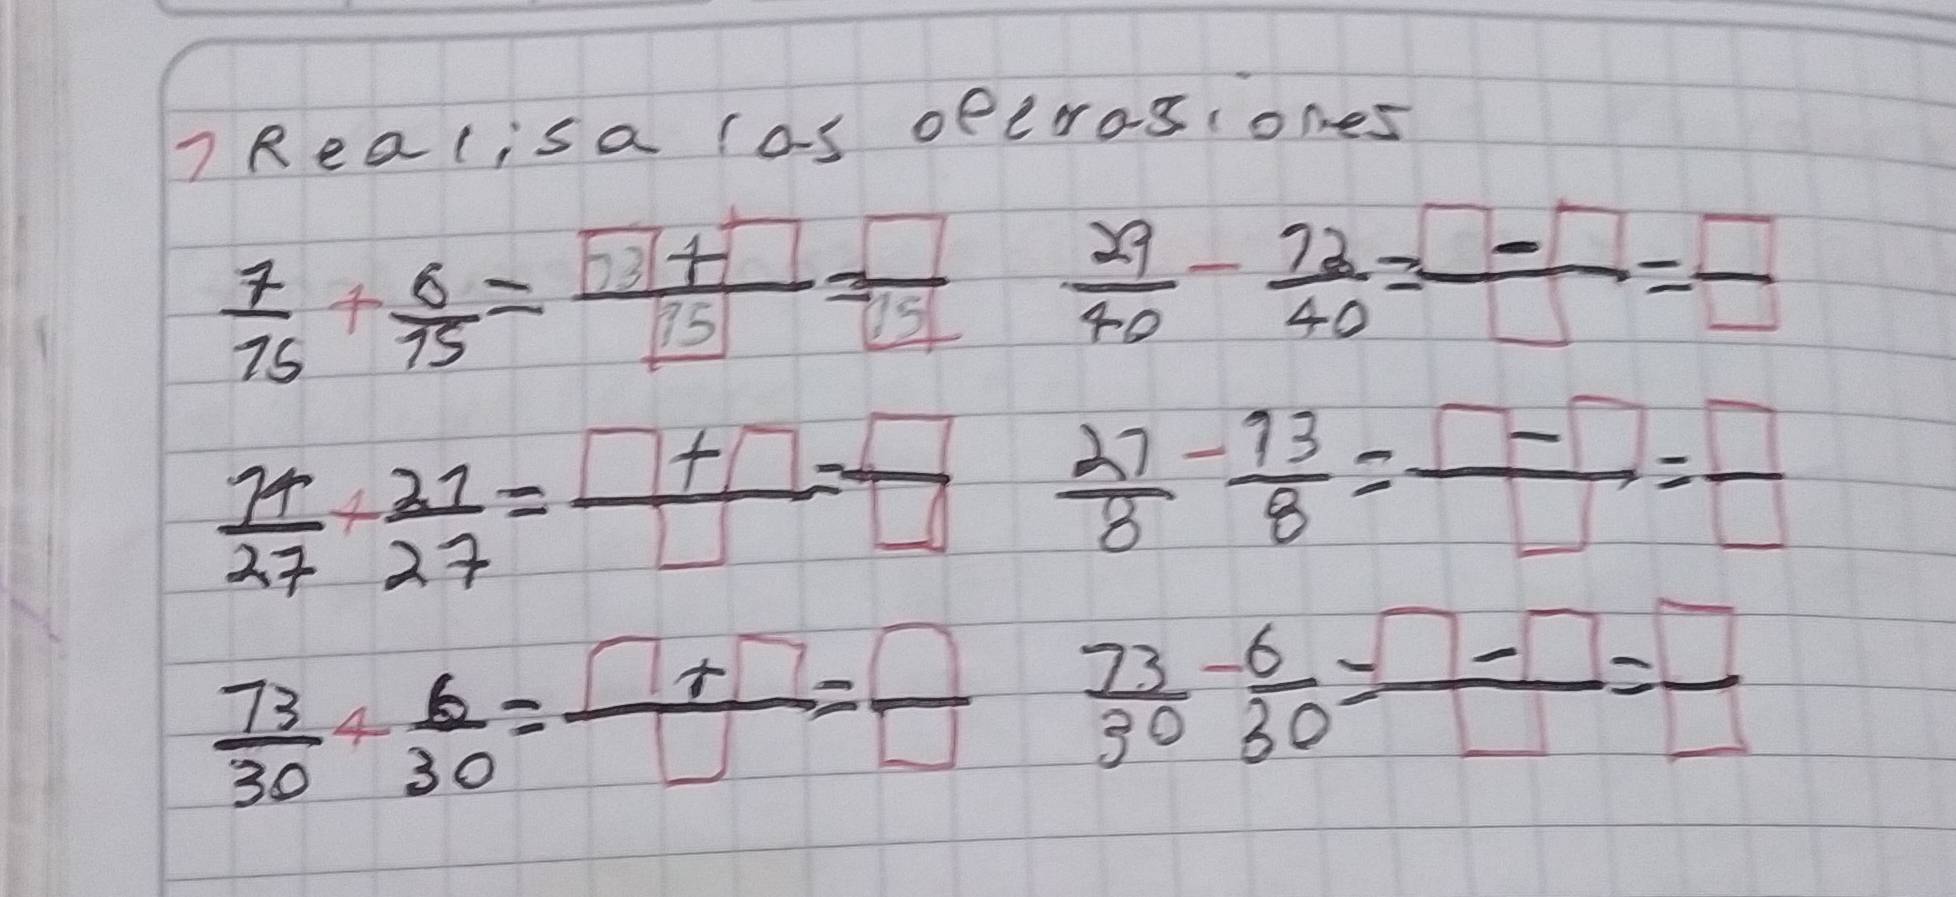 1 Realisa las operasiones
7/15 + 6/15 = 13 + □/15 = □/15
29/40 - 12/40 = □ - □/□ = □/□
14/27 + 21/27 = □ + □/□ = □/□
27/8 - 13/8 = □ - □/□ = □/□
13/30 + 6/30 = □ + □/□ = □/□
13/30 - 6/30 = □ - □/□ = □/□